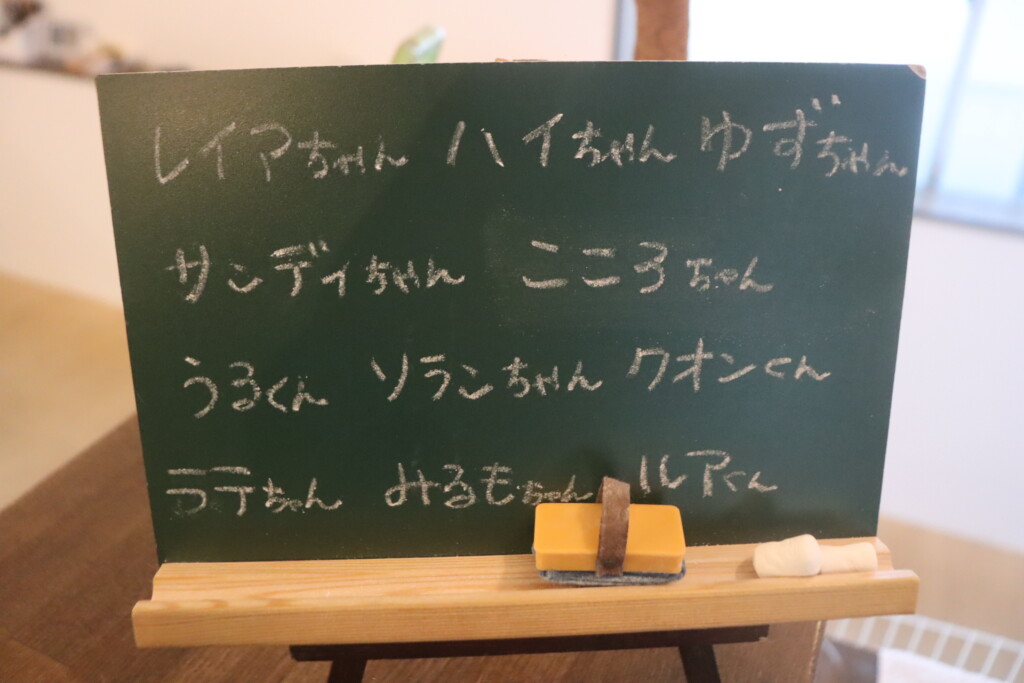 レイアちゃん ハイちゃん ゆずちゃん
サンディちゃん こころちゃん
うるくん ソランちゃん クオンくん
ラテちゃん みるもちゃん ルアくん